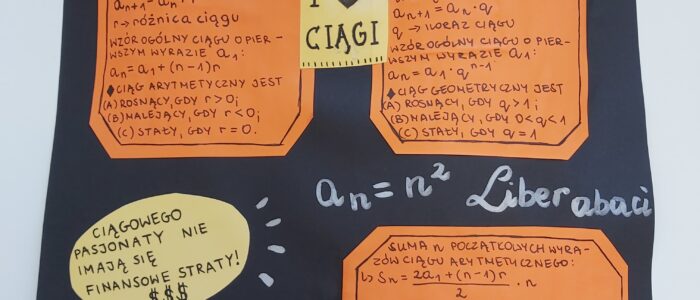 an+1 = an + r
r → różnica ciągu
WZÓR OGÓLNY CIĄGU O PIER-
WSZYM WYRAZIE a1:
an = a1 + (n-1)r
♦CIĄG ARYTMETYCZNY JEST
(A) ROSNĄCY, GDY r > 0;
(B) MALEJĄCY, GDY r < 0;
(C) STAŁY, GDY r = 0.
I ♥
CIĄGI
an+1 = an · q
q → ILORAZ CIĄGU
WZÓR OGÓLNY CIĄGU O PIER-
WSZYM WYRAZIE a1:
an = a1 · q^n-1
♦CIĄG GEOMETRYCZNY JEST
(A) ROSNĄCY, GDY q > 1;
(B) MALEJĄCY, GDY 0<q<1
(C) STAŁY, GDY q = 1
an = n² Liber abaci
CIĄGOWEGO
PASJONATY NIE
IMAJĄ SIĘ
FINANSOWE STRATY!
$$$
SUMA n POCZĄTKOWYCH WYRA-
ZÓW CIĄGU ARYTMETYCZNEGO:
↳ Sn = 2a1 + (n-1)r / 2 · n